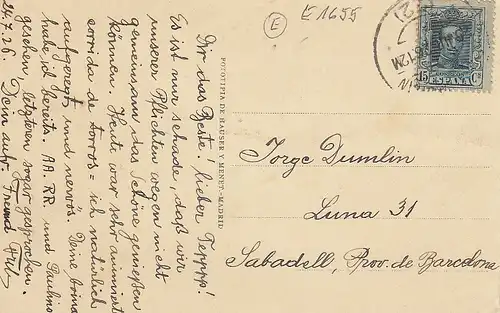 E
E 1655
15 Cs
ESPAÑA
Dir das Beste! lieber Teppp!
Es ist nur schade, daß wir
unserer Pflichten wegen nicht
gemeinsam das Schöne genießen
können. Heute war sehr animiert
corrida de torros = ich natürlich
aufgeregt und nervös. Deine
habe ich bereits. AA. RR. und
gesehen, letzteren sogar gesprochen.
24.7.26. Dein aufr. Freund
FOTOTIPIA DE HAUSER Y MENET.-MADRID
Jorge Dumlin
Luna 31
Sabadell, Prov. de Barcelona